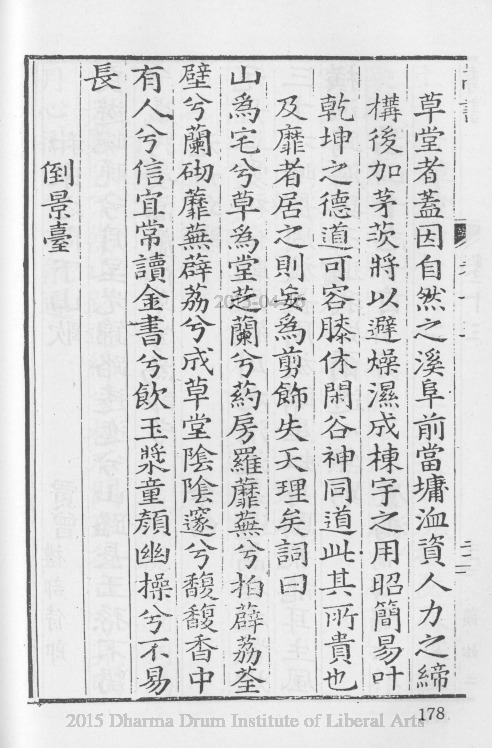 草堂者蓋因自然之溪阜前當墉洫資人力之締
構後加茅茨將以避燥濕成棟宇之用昭簡易叶
乾坤之德道可容膝休閑谷神同道此其所貴也
及靡者居之則妄為剪飾失天理矣詞曰
山為宅兮草為堂芝蘭兮葯房羅蘼蕪兮拍薜荔荃
壁兮蘭砌蘼蕪薜荔兮成草堂陰陰邃兮馥馥香中
有人兮信宜常讀金書兮飲玉漿童顏幽操兮不易
長
倒景臺
178
2015 Dharma Drum Institute of Liberal Arts